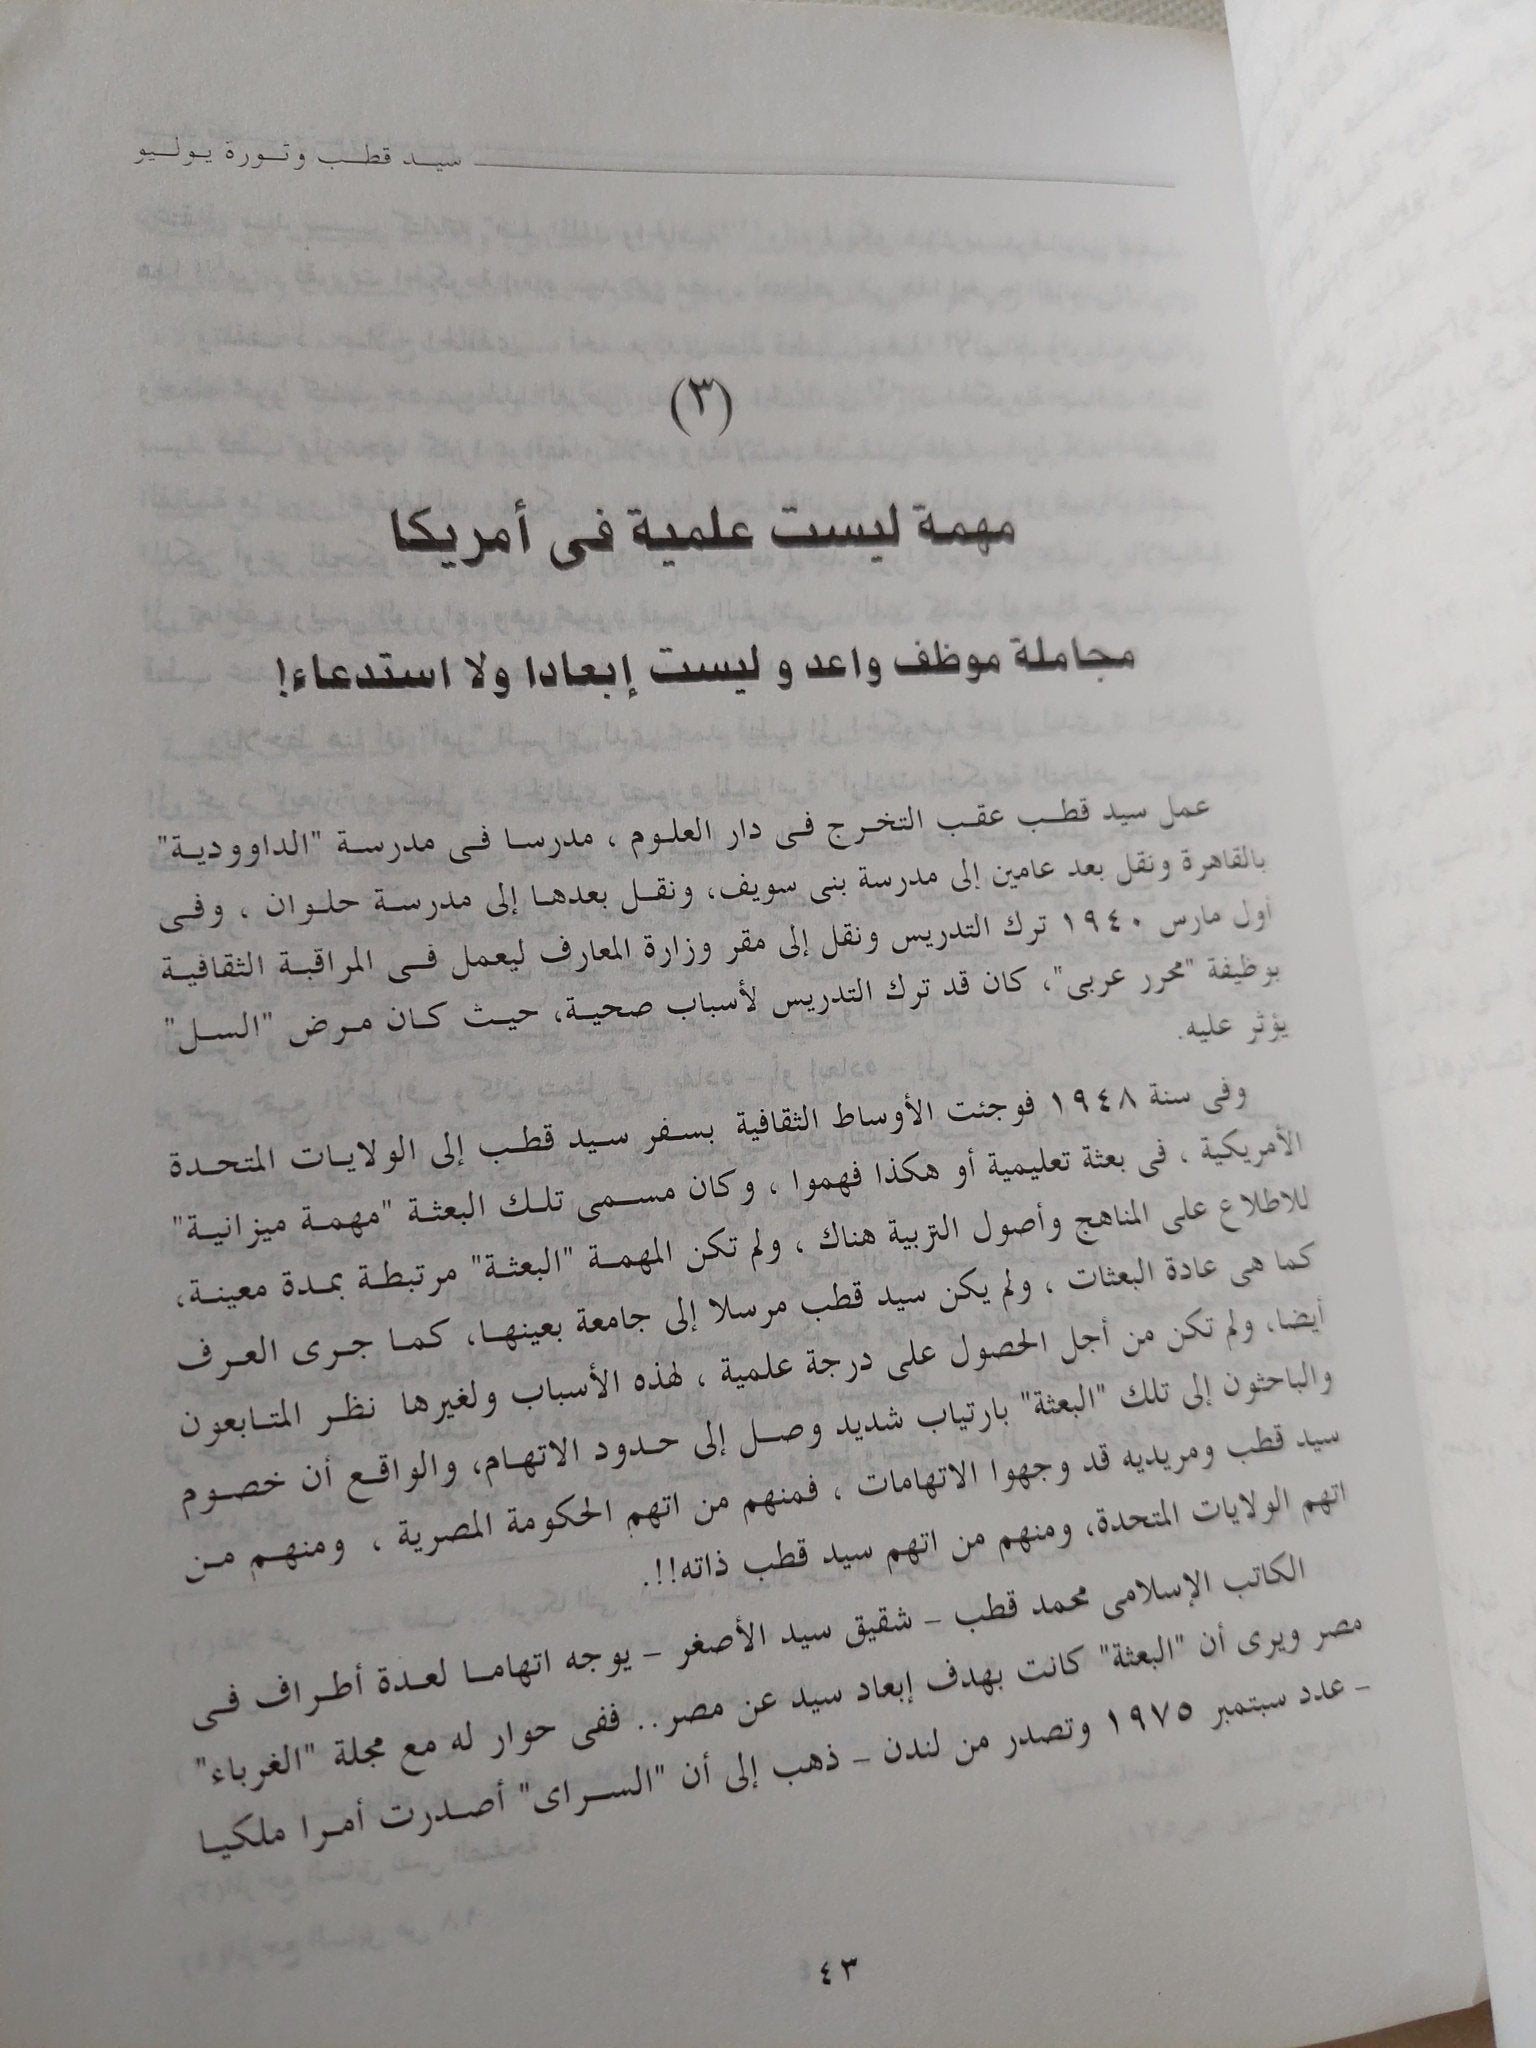 سيد قطب وثورة يوليو
(٣)
مهمة ليست علمية فى أمريكا
مجاملة موظف واعد و ليست إبعادا ولا استدعاء!
عمل سيد قطب عقب التخرج فى دار العلوم ، مدرسا فى مدرسة "الداوودية"
بالقاهرة ونقل بعد عامين إلى مدرسة بنى سويف، ونقل بعدها إلى مدرسة حلوان ، وفى
أول مارس ١٩٤٠ ترك التدريس ونقل إلى مقر وزارة المعارف ليعمل فى المراقبة الثقافية
بوظيفة "محرر عربى"، كان قد ترك التدريس لأسباب صحية، حيث كان مرض "السل"
يؤثر عليه.
وفى سنة ١٩٤٨ فوجئت الأوساط الثقافية بسفر سيد قطب إلى الولايات المتحدة
الأمريكية ، فى بعثة تعليمية أو هكذا فهموا ، وكان مسمى تلك البعثة "مهمة ميزانية"
للاطلاع على المناهج وأصول التربية هناك ، ولم تكن المهمة "البعثة" مرتبطة بمدة معينة،
كما هى عادة البعثات ، ولم يكن سيد قطب مرسلا إلى جامعة بعينها، كما جرى العرف
أيضا، ولم تكن من أجل الحصول على درجة علمية ، لهذه الأسباب ولغيرها نظر المتابعون
والباحثون إلى تلك "البعثة" بارتياب شديد وصل إلى حدود الاتهام، والواقع أن خصوم
سيد قطب ومريديه قد وجهوا الاتهامات ، فمنهم من اتهم الحكومة المصرية ، ومنهم من
اتهم الولايات المتحدة، ومنهم من اتهم سيد قطب ذاته!!.
الكاتب الإسلامى محمد قطب – شقيق سيد الأصغر – يوجه اتهاما لعدة أطراف فى
مصر ويرى أن "البعثة" كانت بهدف إبعاد سيد عن مصر.. ففى حوار له مع مجلة "الغرباء"
– عدد سبتمبر ١٩٧٥ وتصدر من لندن – ذهب إلى أن "السراى" أصدرت أمرا ملكيا
٤٣